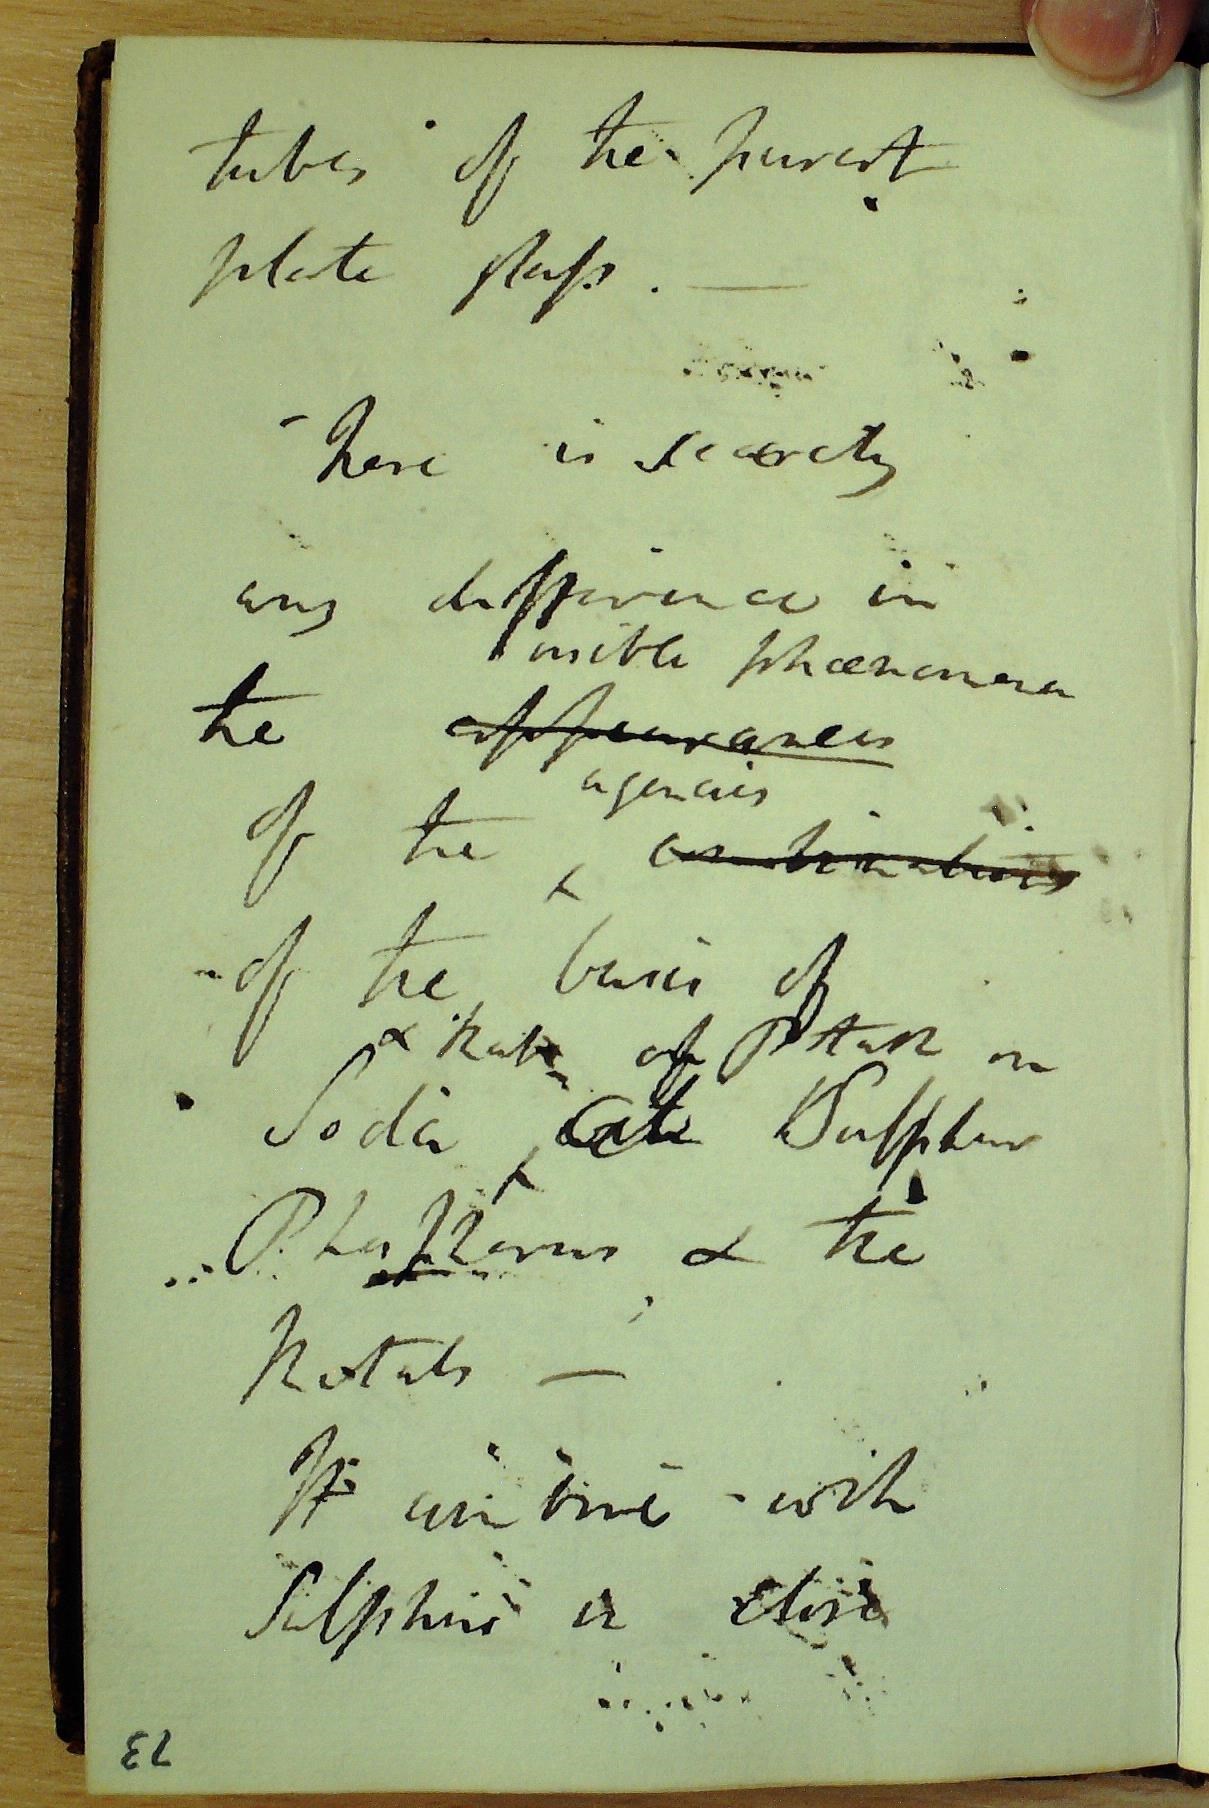 tubes of the purest
plate glass. —
There is scarcely
any difference in
visible phænomena
the appearances
agencies
of the combinations
of the basis of
& that of Potash on
Soda Sulphur
Phosphorus & the
Metals —
It combine with
Sulphur in close
23